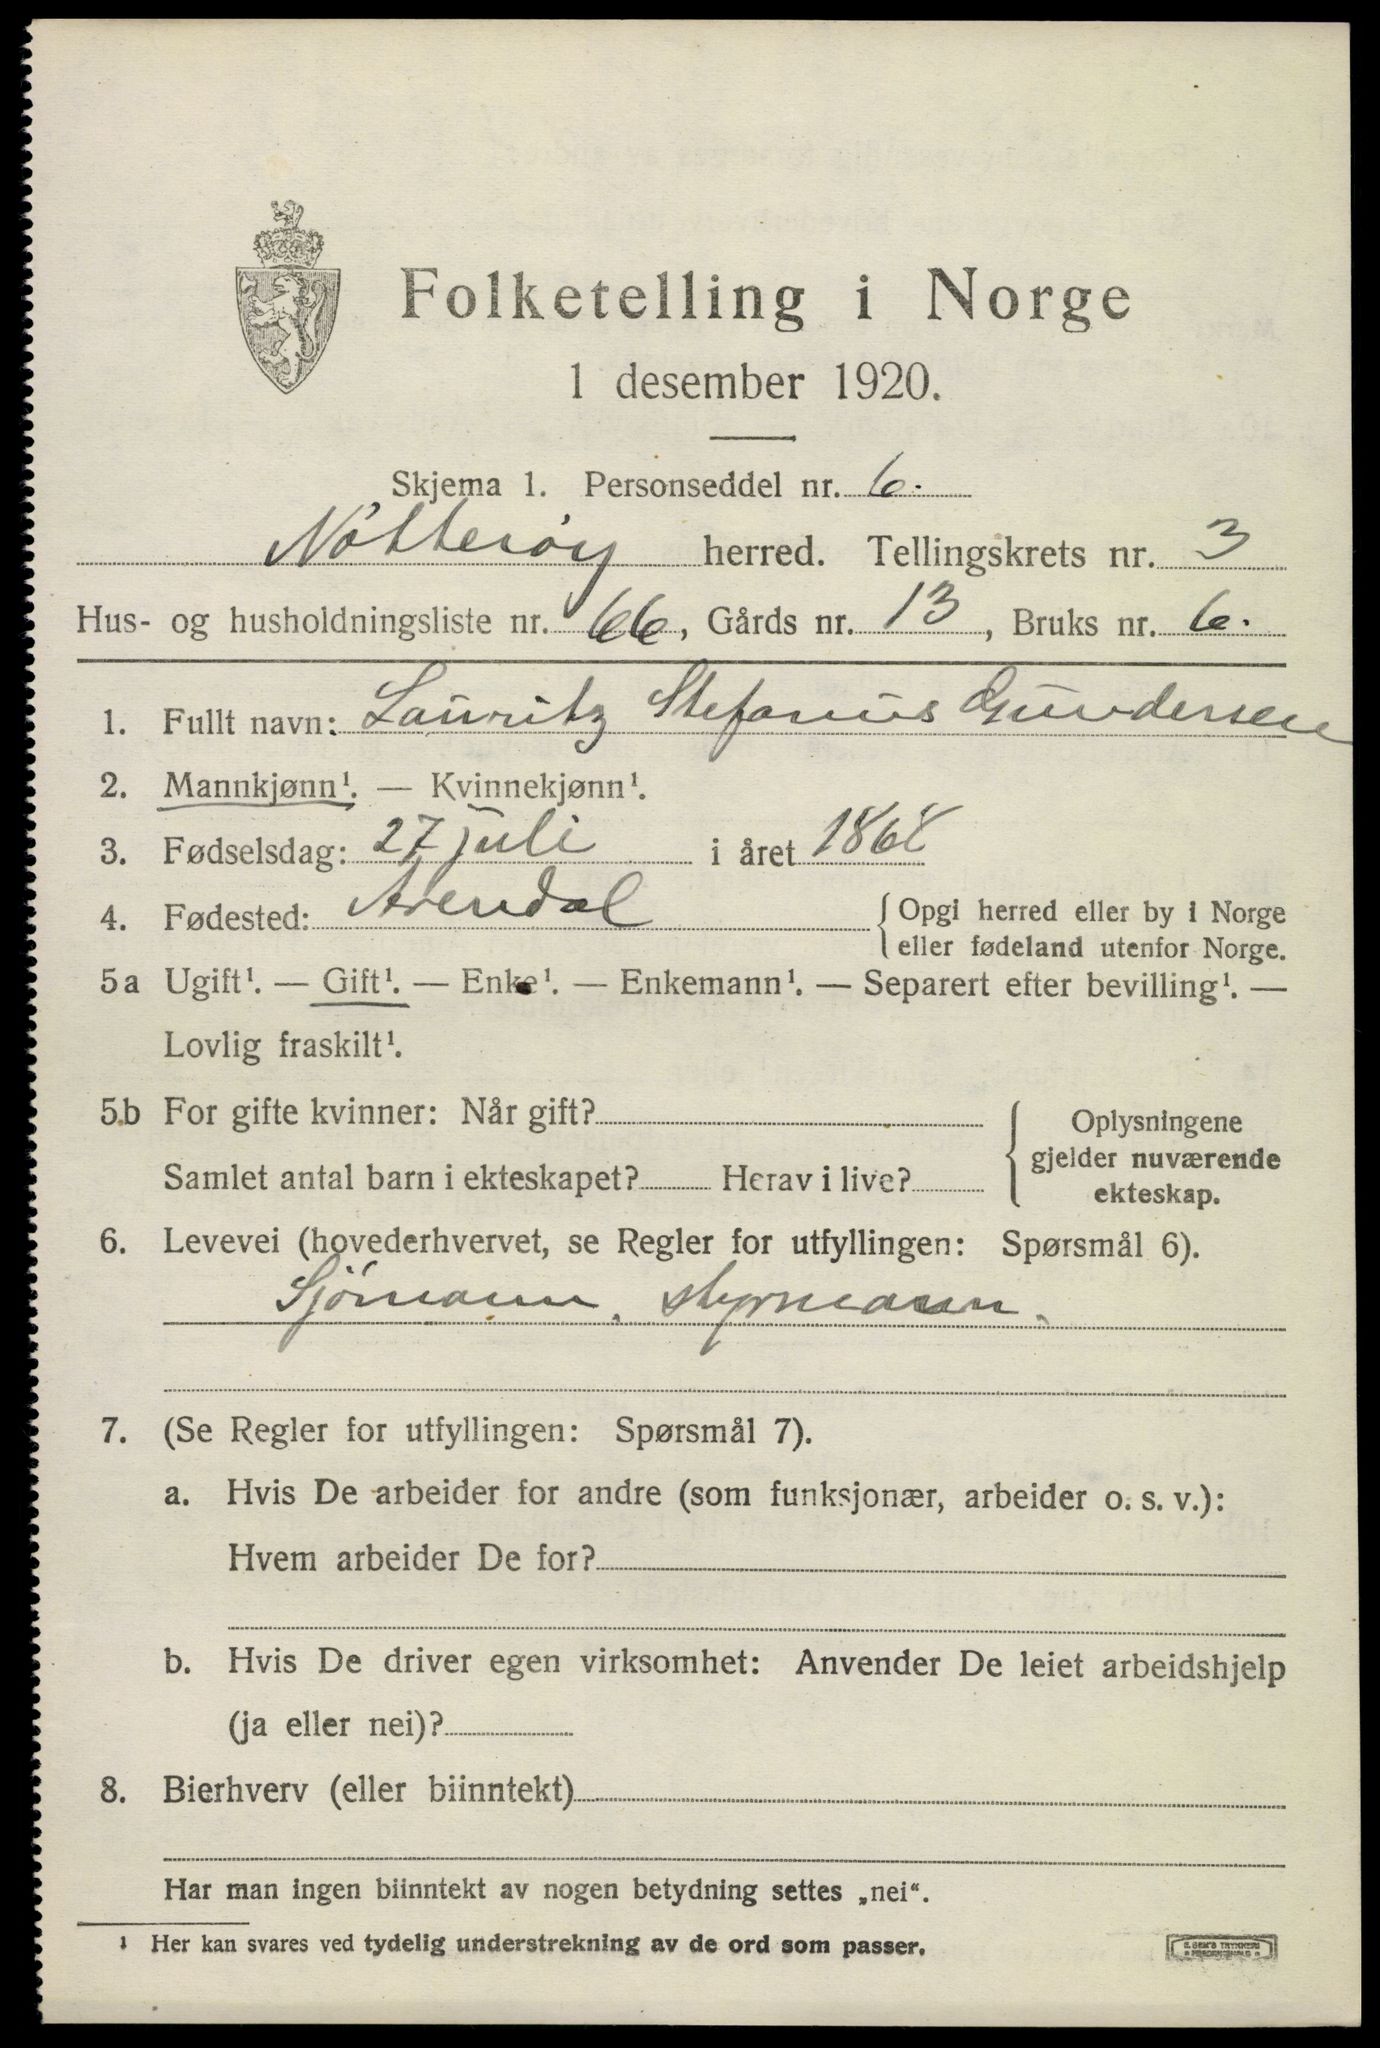 Folketelling i Norge
1 desember 1920.
Skjema 1. Personseddel nr. 6.
Nötteröy herred. Tellingskrets nr. 3
Hus- og husholdningsliste nr. 66, Gårds nr. 13, Bruks nr. 6.
1. Fullt navn: Lauritz Stefanus Gundersen
2. Mannkjønn¹. — Kvinnekjønn¹.
3. Fødselsdag: 27 juli i året 1868
4. Fødested: Arendal { Opgi herred eller by i Norge
eller fødeland utenfor Norge.
5a Ugift¹. — Gift¹. — Enke¹. — Enkemann¹. — Separert efter bevilling¹. —
Lovlig fraskilt¹.
5b For gifte kvinner: Når gift?
Samlet antal barn i ekteskapet? Herav i live?
{ Oplysningene
gjelder nuværende
ekteskap.
6. Levevei (hovederhvervet, se Regler for utfyllingen: Spørsmål 6).
Sjömann, styrmann.
7. (Se Regler for utfyllingen: Spørsmål 7).
a. Hvis De arbeider for andre (som funksjonær, arbeider o. s. v.):
Hvem arbeider De for?
b. Hvis De driver egen virksomhet: Anvender De leiet arbeidshjelp
(ja eller nei)?
8. Bierhverv (eller biinntekt)
Har man ingen biinntekt av nogen betydning settes „nei“.
¹ Her kan svares ved tydelig understrekning av de ord som passer.